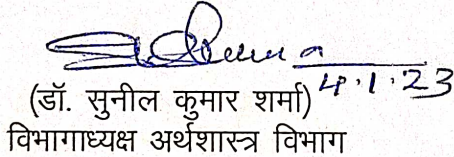 4.1.23
(डॉ. सुनील कुमार शर्मा)
विभागाध्यक्ष अर्थशास्त्र विभाग